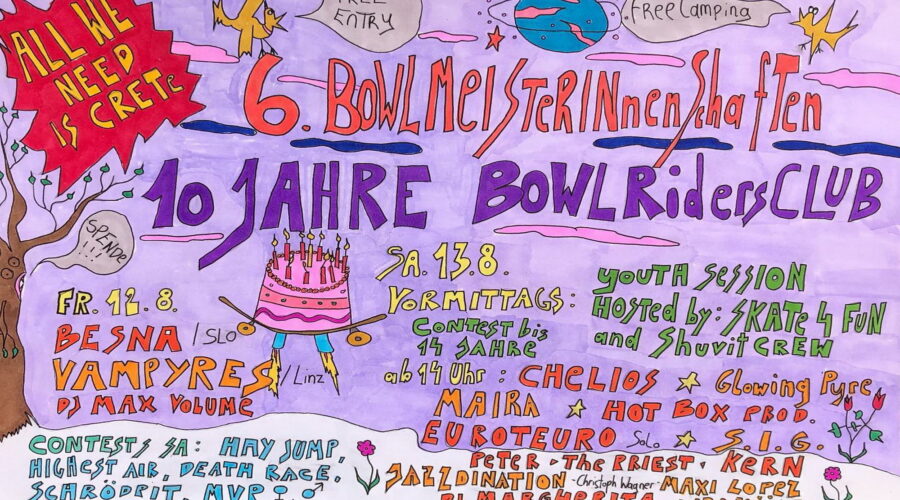 FREE
ENTRY
.FREE Camping
ALL WE
NEED
IS CRETE
6. BOWLMEISTERINnenSchafTen
10 JAHRE BOWLRidersCLUB
SPENDE
!!!
FR. 12.8.
BESNA /SLO
VAMPYRES /Linz
DJ MAX VOLUME
SA. 13.8.
VORMITTAGS:
CONTEST bis
14 JAHRE
YOUTH SESSION
HOSTED by: SKATE 4 FUN
and ShuvitCREW
ab 14 Uhr : CHELIOS
Glowing Pyre
MAIRA
HOT BOX PROD.
EUROTEURO Solo
S.I.G.
PETER - THE PRIEST - KERN
JAZZDINATION - Christoph Wagner - MAXI LOPEZ
CONTESTS SA: HAY JUMP,
HIGHEST AIR, DEATH RACE,